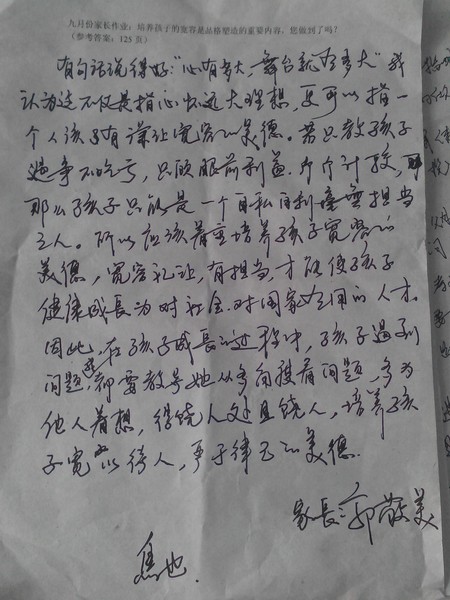 九月份家长作业：培养孩子的宽容是品格塑造的重要内容，您做到了吗？
（参考答案：125 页）
有句话说得好："心有多大，舞台就有多大"我
认为这不仅是指心出远大理想，更可以指一
个人该予有谦让宽容的美德。若只教孩子
遇争不吃亏，只顾眼前利益，个个计较，
那么孩子只能是一个自私自利毫无担当
之人。所以应该着重培养孩子宽容的
美德，宽容礼让，有担当，才能使孩子
健康成长为对社会、对国家有用的人才。
因此，在孩子成长的过程中，孩子遇到
问题，我都要教导她从多角度看问题，多为
他人着想，得饶人处且饶人，培养孩
子宽以待人，严于律己的美德.
家长：郭